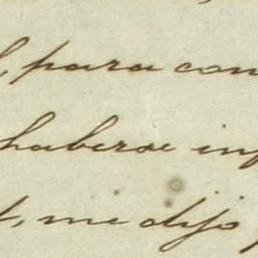 , para con
haberse in
t, me dijo